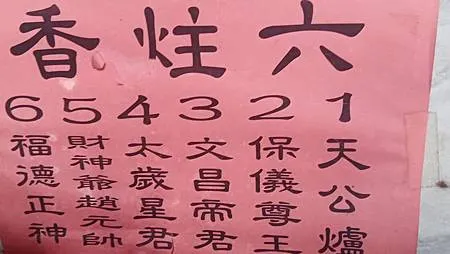 六炷香
1 天公爐
2 保儀尊王
3 文昌帝君
4 太歲星君
5 財神爺趙元帥
6 福德正神